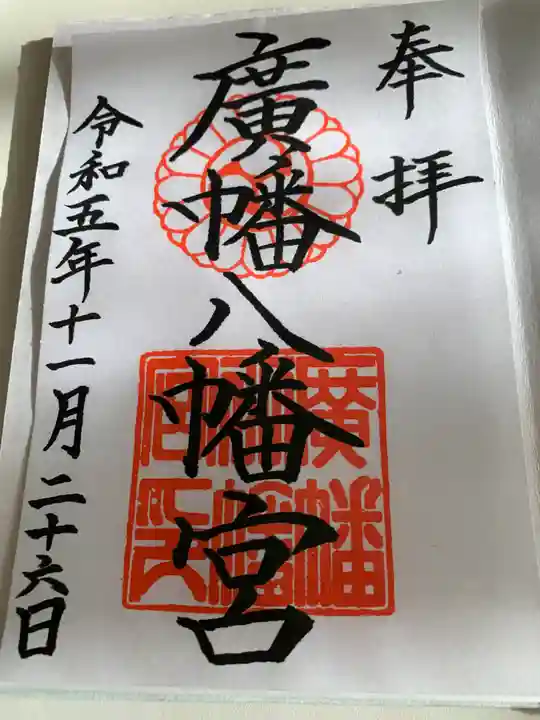 奉拝
廣幡八幡宮
令和五年十一月二十六日
廣幡
八幡
宮印